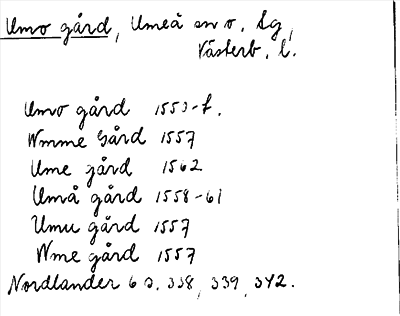 Umo gård, Umeå sn o. Lg,
Västerb. l.
Umo gård 1553-f.
Wmme Gård 1557
Ume gård 1562
Umå gård 1558-61
Umu gård 1557
Wme gård 1557
Nordlander 6 s. 338, 339, 342.